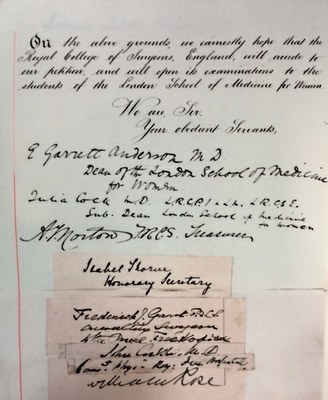 On the above grounds, we earnestly hope that the
Royal College of Surgeons, England, will accede to
our petition, and will open its examinations to the
students of the London School of Medicine for Women
We are, Sir,
Your obedient Servants,
E Garrett Anderson M D
Dean of the London School of Medicine
for Women
Julia Cock M.D. L.R.C.P.I & L.M. L.R.C.S.E.
Sub. Dean London School of Medicine
for Women
A. T. Norton F.R.C.S. Treasurer
Isabel Thorne
Honorary Secretary
Frederick J. Gant F.R.C.S.
Consulting Surgeon
to the Royal Free Hospital
John Cockle. M.D.
Phys. Roy: Free Hospital
William Rose